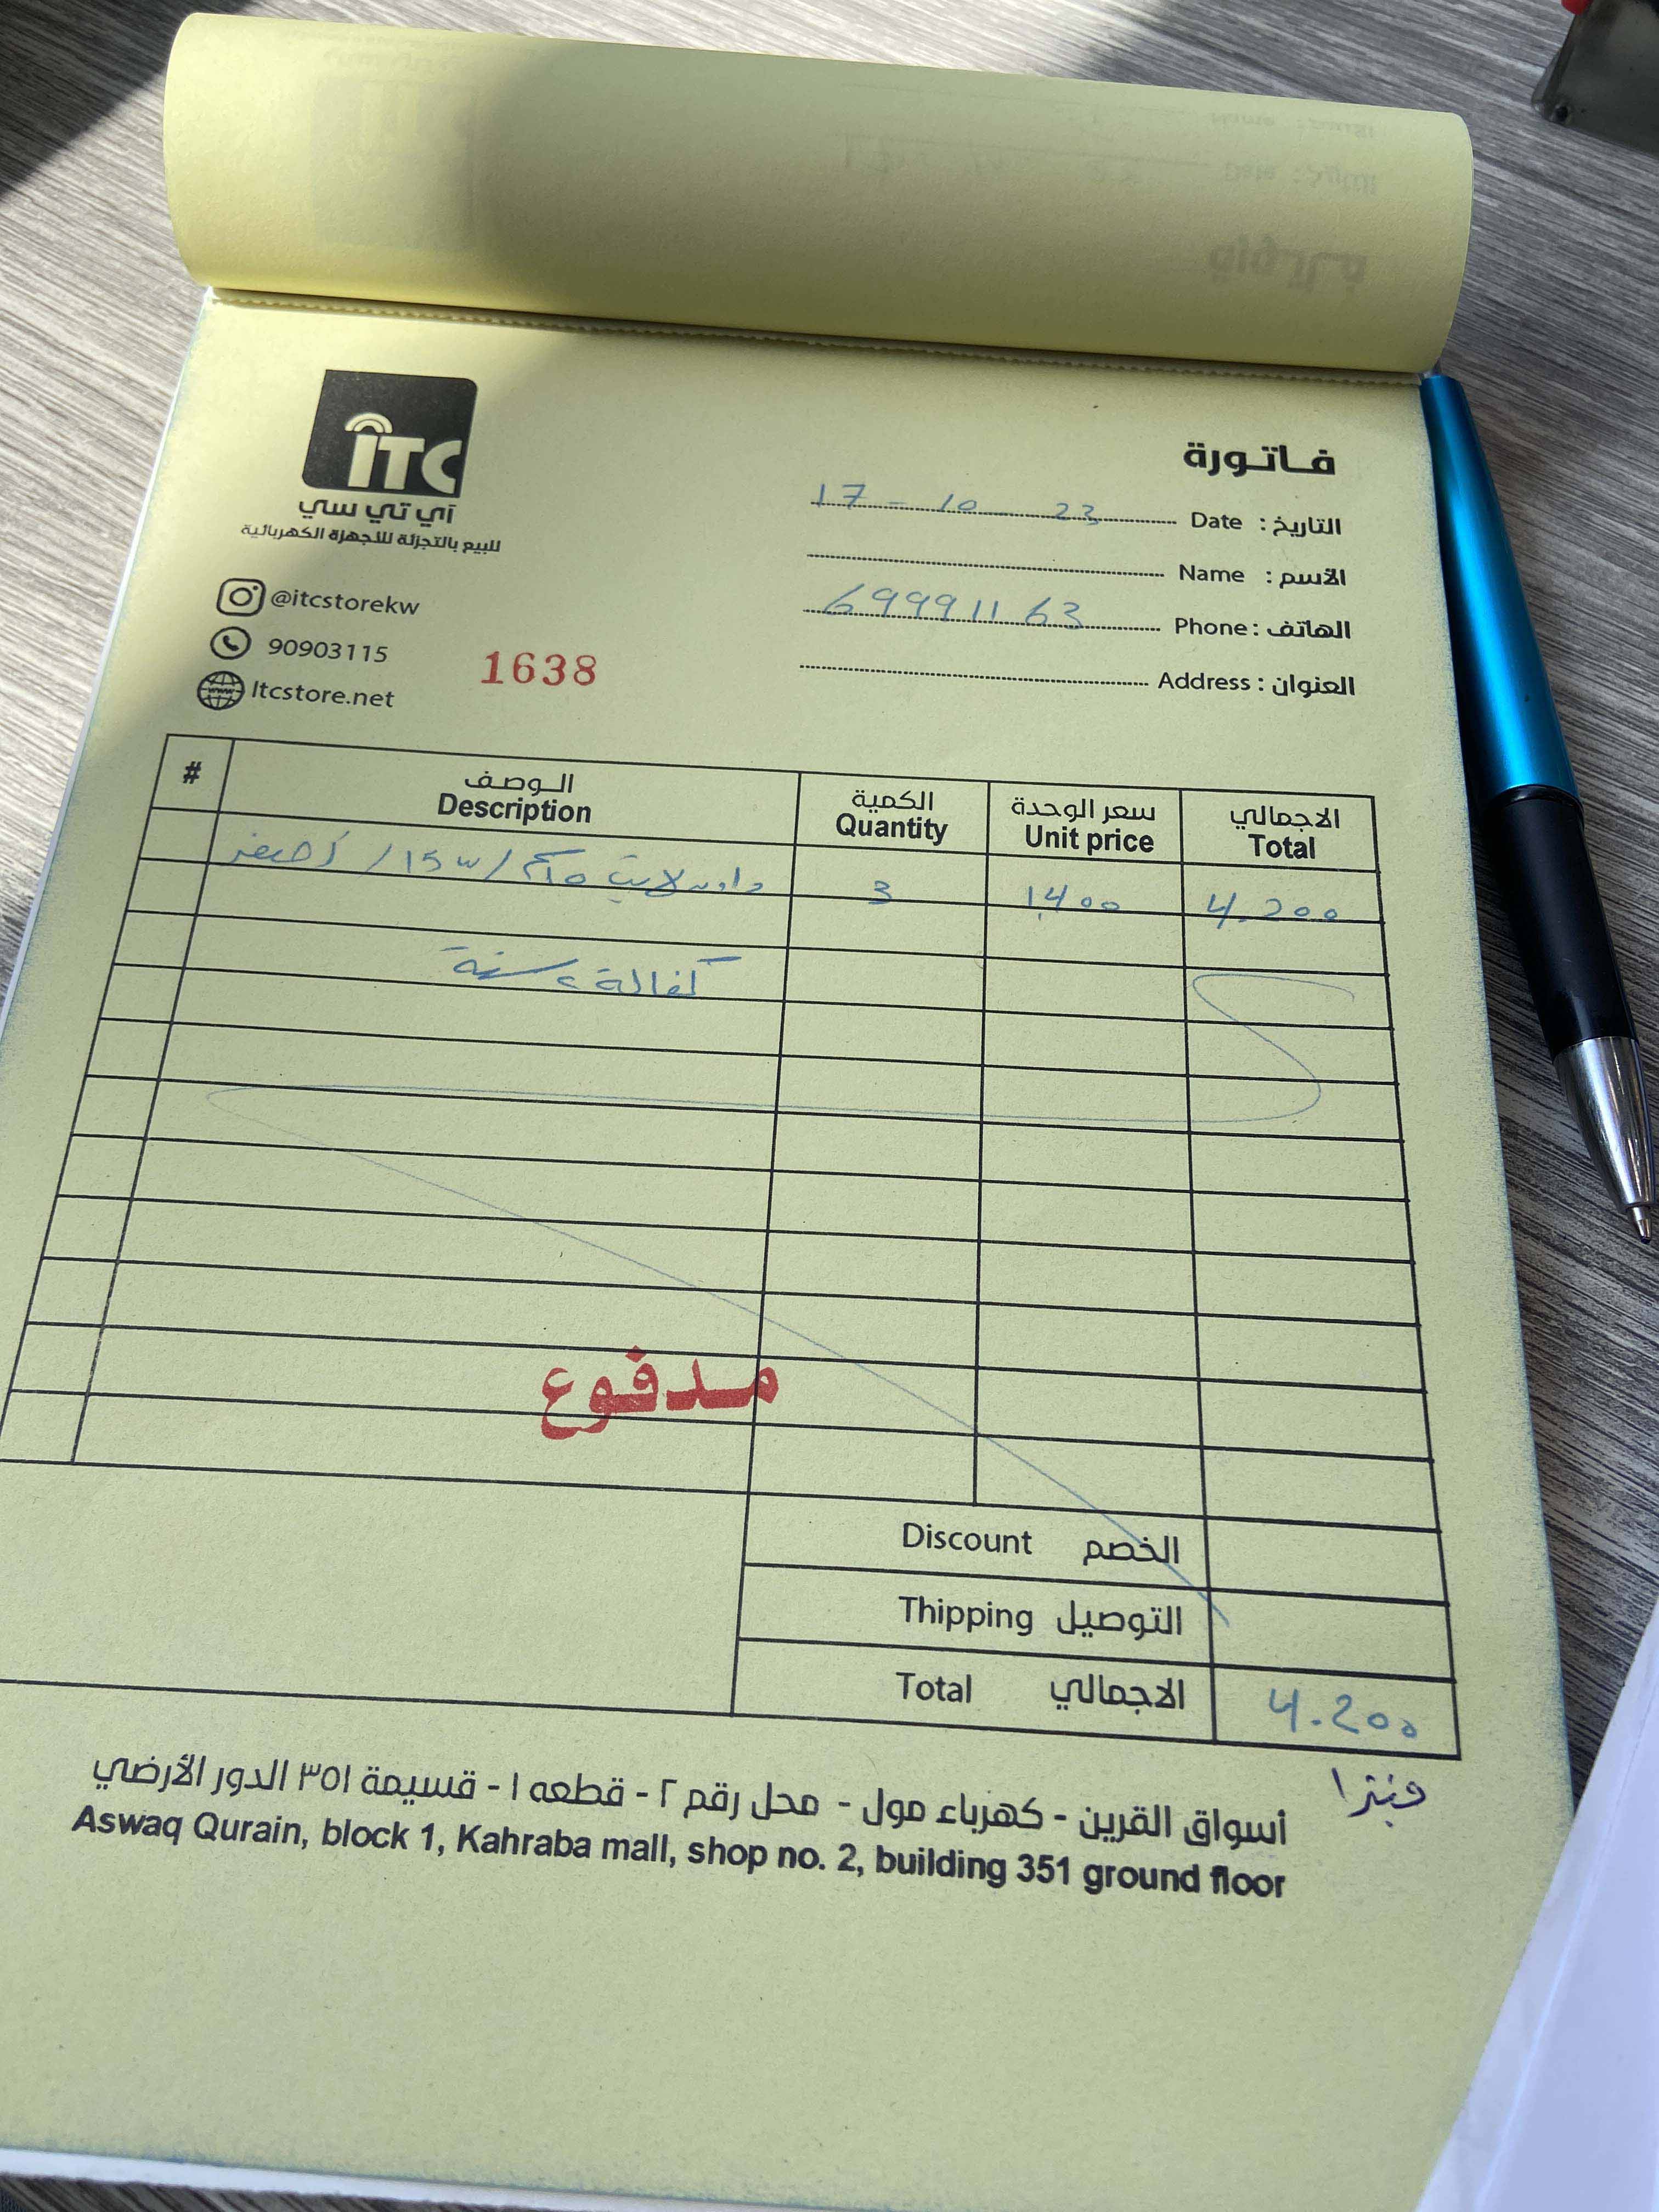 ITC
آي تي سي
للبيع بالتجزئة للأجهزة الكهربائية
@itcstorekw
90903115
Itcstore.net
1638
فاتورة
التاريخ : Date 17 - 10 - 23
الأسم : Name
الهاتف : Phone 69991163
العنوان : Address
# الوصف الكمية سعر الوحدة الاجمالي
Description Quantity Unit price Total
داون لايت /15w/ أصفر 3 1.400 4.200
كفالة ٢ سنة
مدفوع
Discount الخصم
Thipping التوصيل
Total الاجمالي 4.200
أسواق القرين - كهرباء مول - محل رقم ٢ - قطعه ١ - قسيمة ٣٥١ الدور الأرضي
Aswaq Qurain, block 1, Kahraba mall, shop no. 2, building 351 ground floor